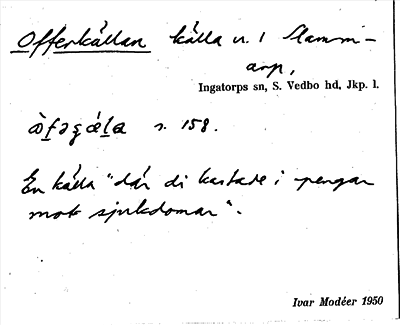 Offerkällan källa n. i Stamm-
arp,
Ingatorps sn, S. Vedbo hd, Jkp. l.
s. 158.
En källa "där di kastade i pengar
mot sjukdomar".
Ivar Modéer 1950